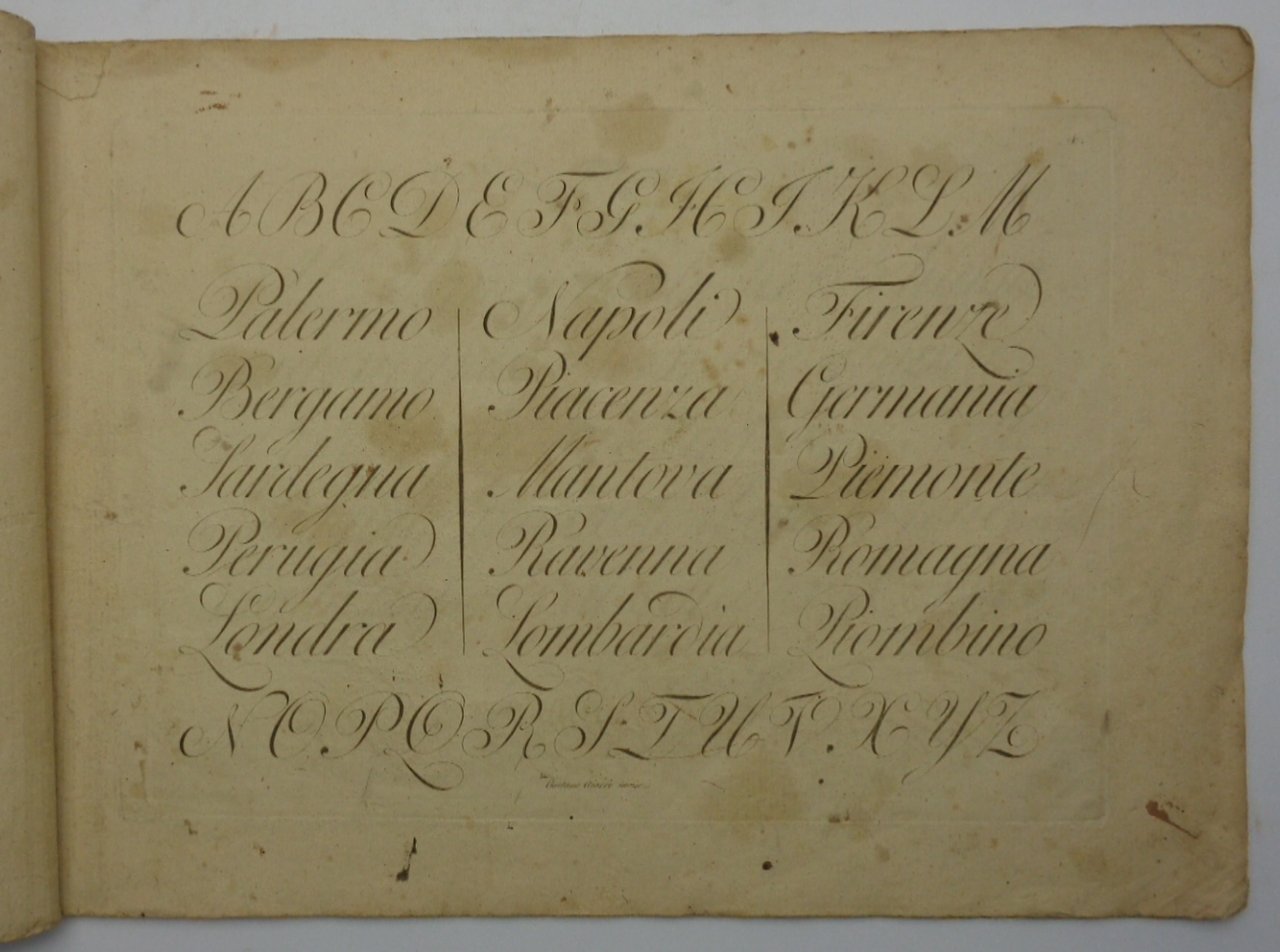 A B C D E F G H I K L M
Palermo Napoli Firenze
Bergamo Piacenza Germania
Sardegna Mantova Piemonte
Perugia Ravenna Romagna
Londra Lombardia Piombino
N O P Q R S T U V X Y Z